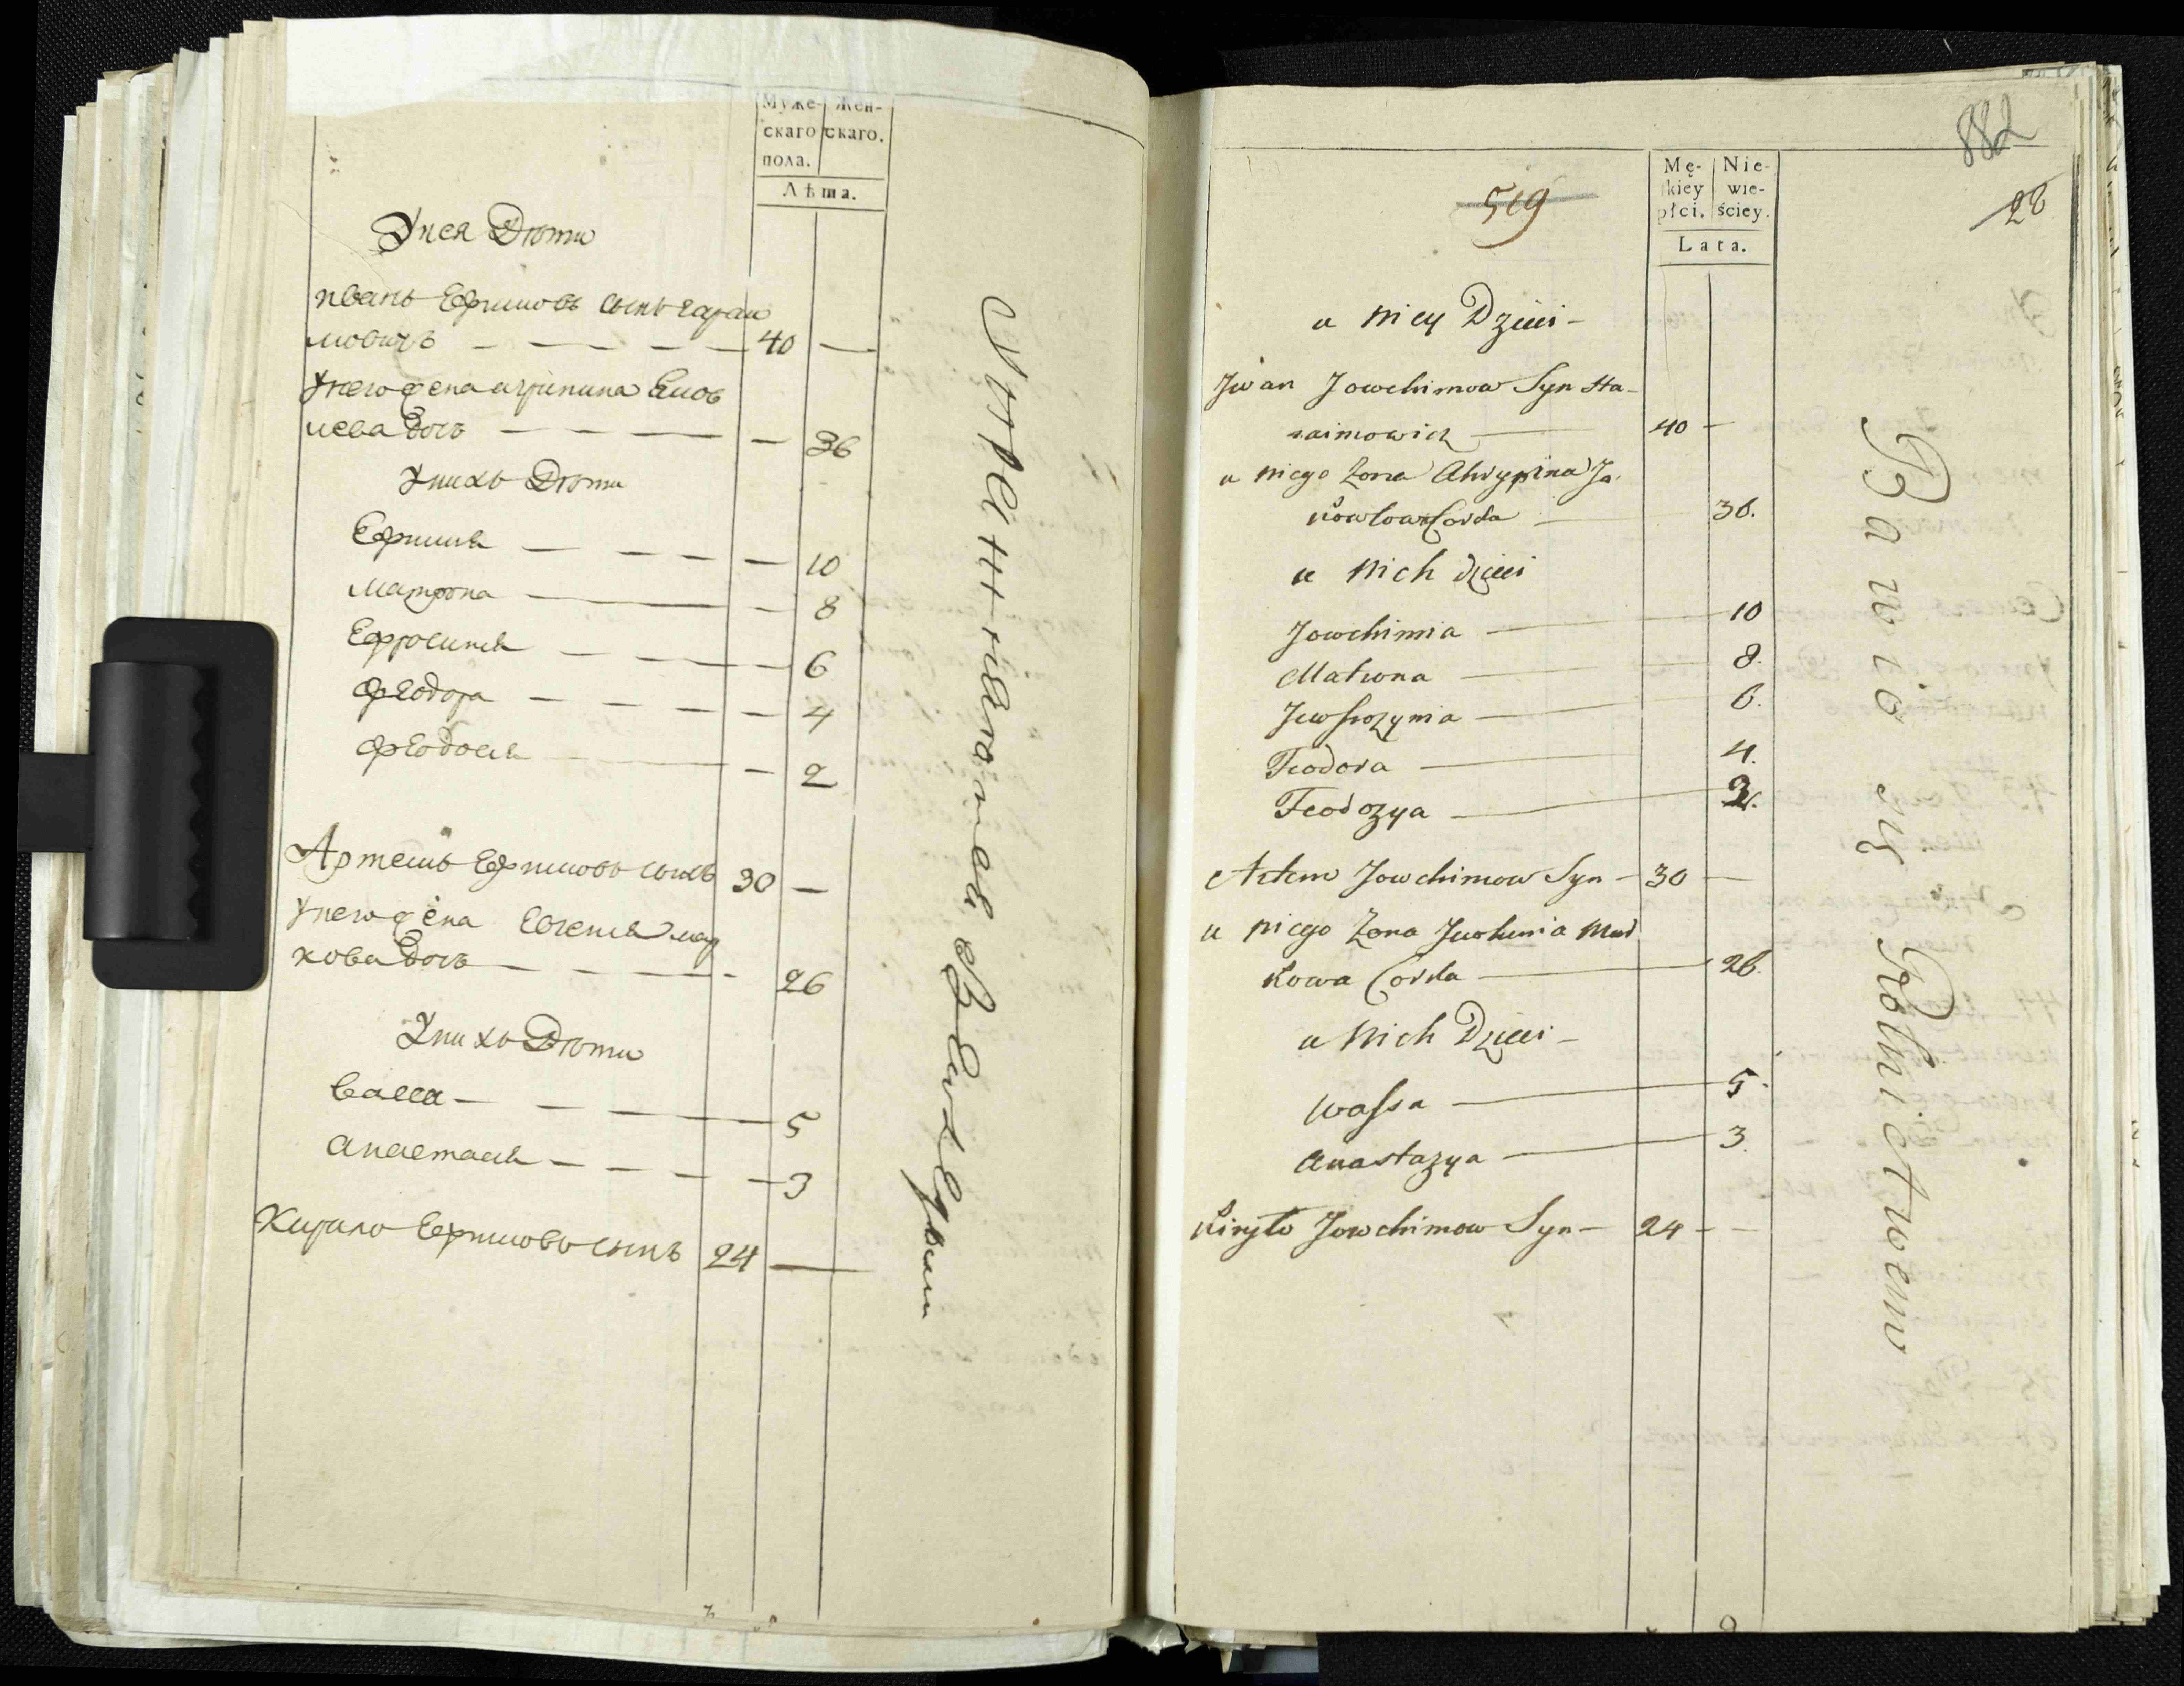 Муже- Жен-
скаго скаго.
пола.
Лѣта.
Унея Дѣти
Иванъ Ефимовъ сынъ гараи
мовичъ 40 —
Унего жена агрипина Еков
лева дочь — 36
Унихъ Дѣти
Ефимия — 10
матрона — 8
Ефросиния — 6
феодора — 4
феодосия — 2
Артемъ Ефимовъ сынъ 30 —
Унего жена Евгения мар
кова дочь — 26
Унихъ Дѣти
васса — 5
анастасия — 3
Кирило Ефимовъ сынъ 24 —
882
28
519
Mę- Nie-
skiey wie-
płci. ściey.
Lata.
u niey Dzieci
Jwan Jowchimow Syn Ha-
raimowicz 40 —
u niego Żona Ahrypina Ja
kowlowa Corka 36.
u nich dzieci
Jowchimia — 10
Matrona — 8.
Jewfrozynia — 6.
Feodora — 4.
Feodozya — 2.
Artem Jowchimow Syn — 30 —
u niego Żona Jewhenia Mar
kowa Corka — 26.
u nich Dzieci
Wassa — 5.
Anastazya — 3.
Kiryło Jowchimow Syn — 24 —
Bawio się Rolnictwem